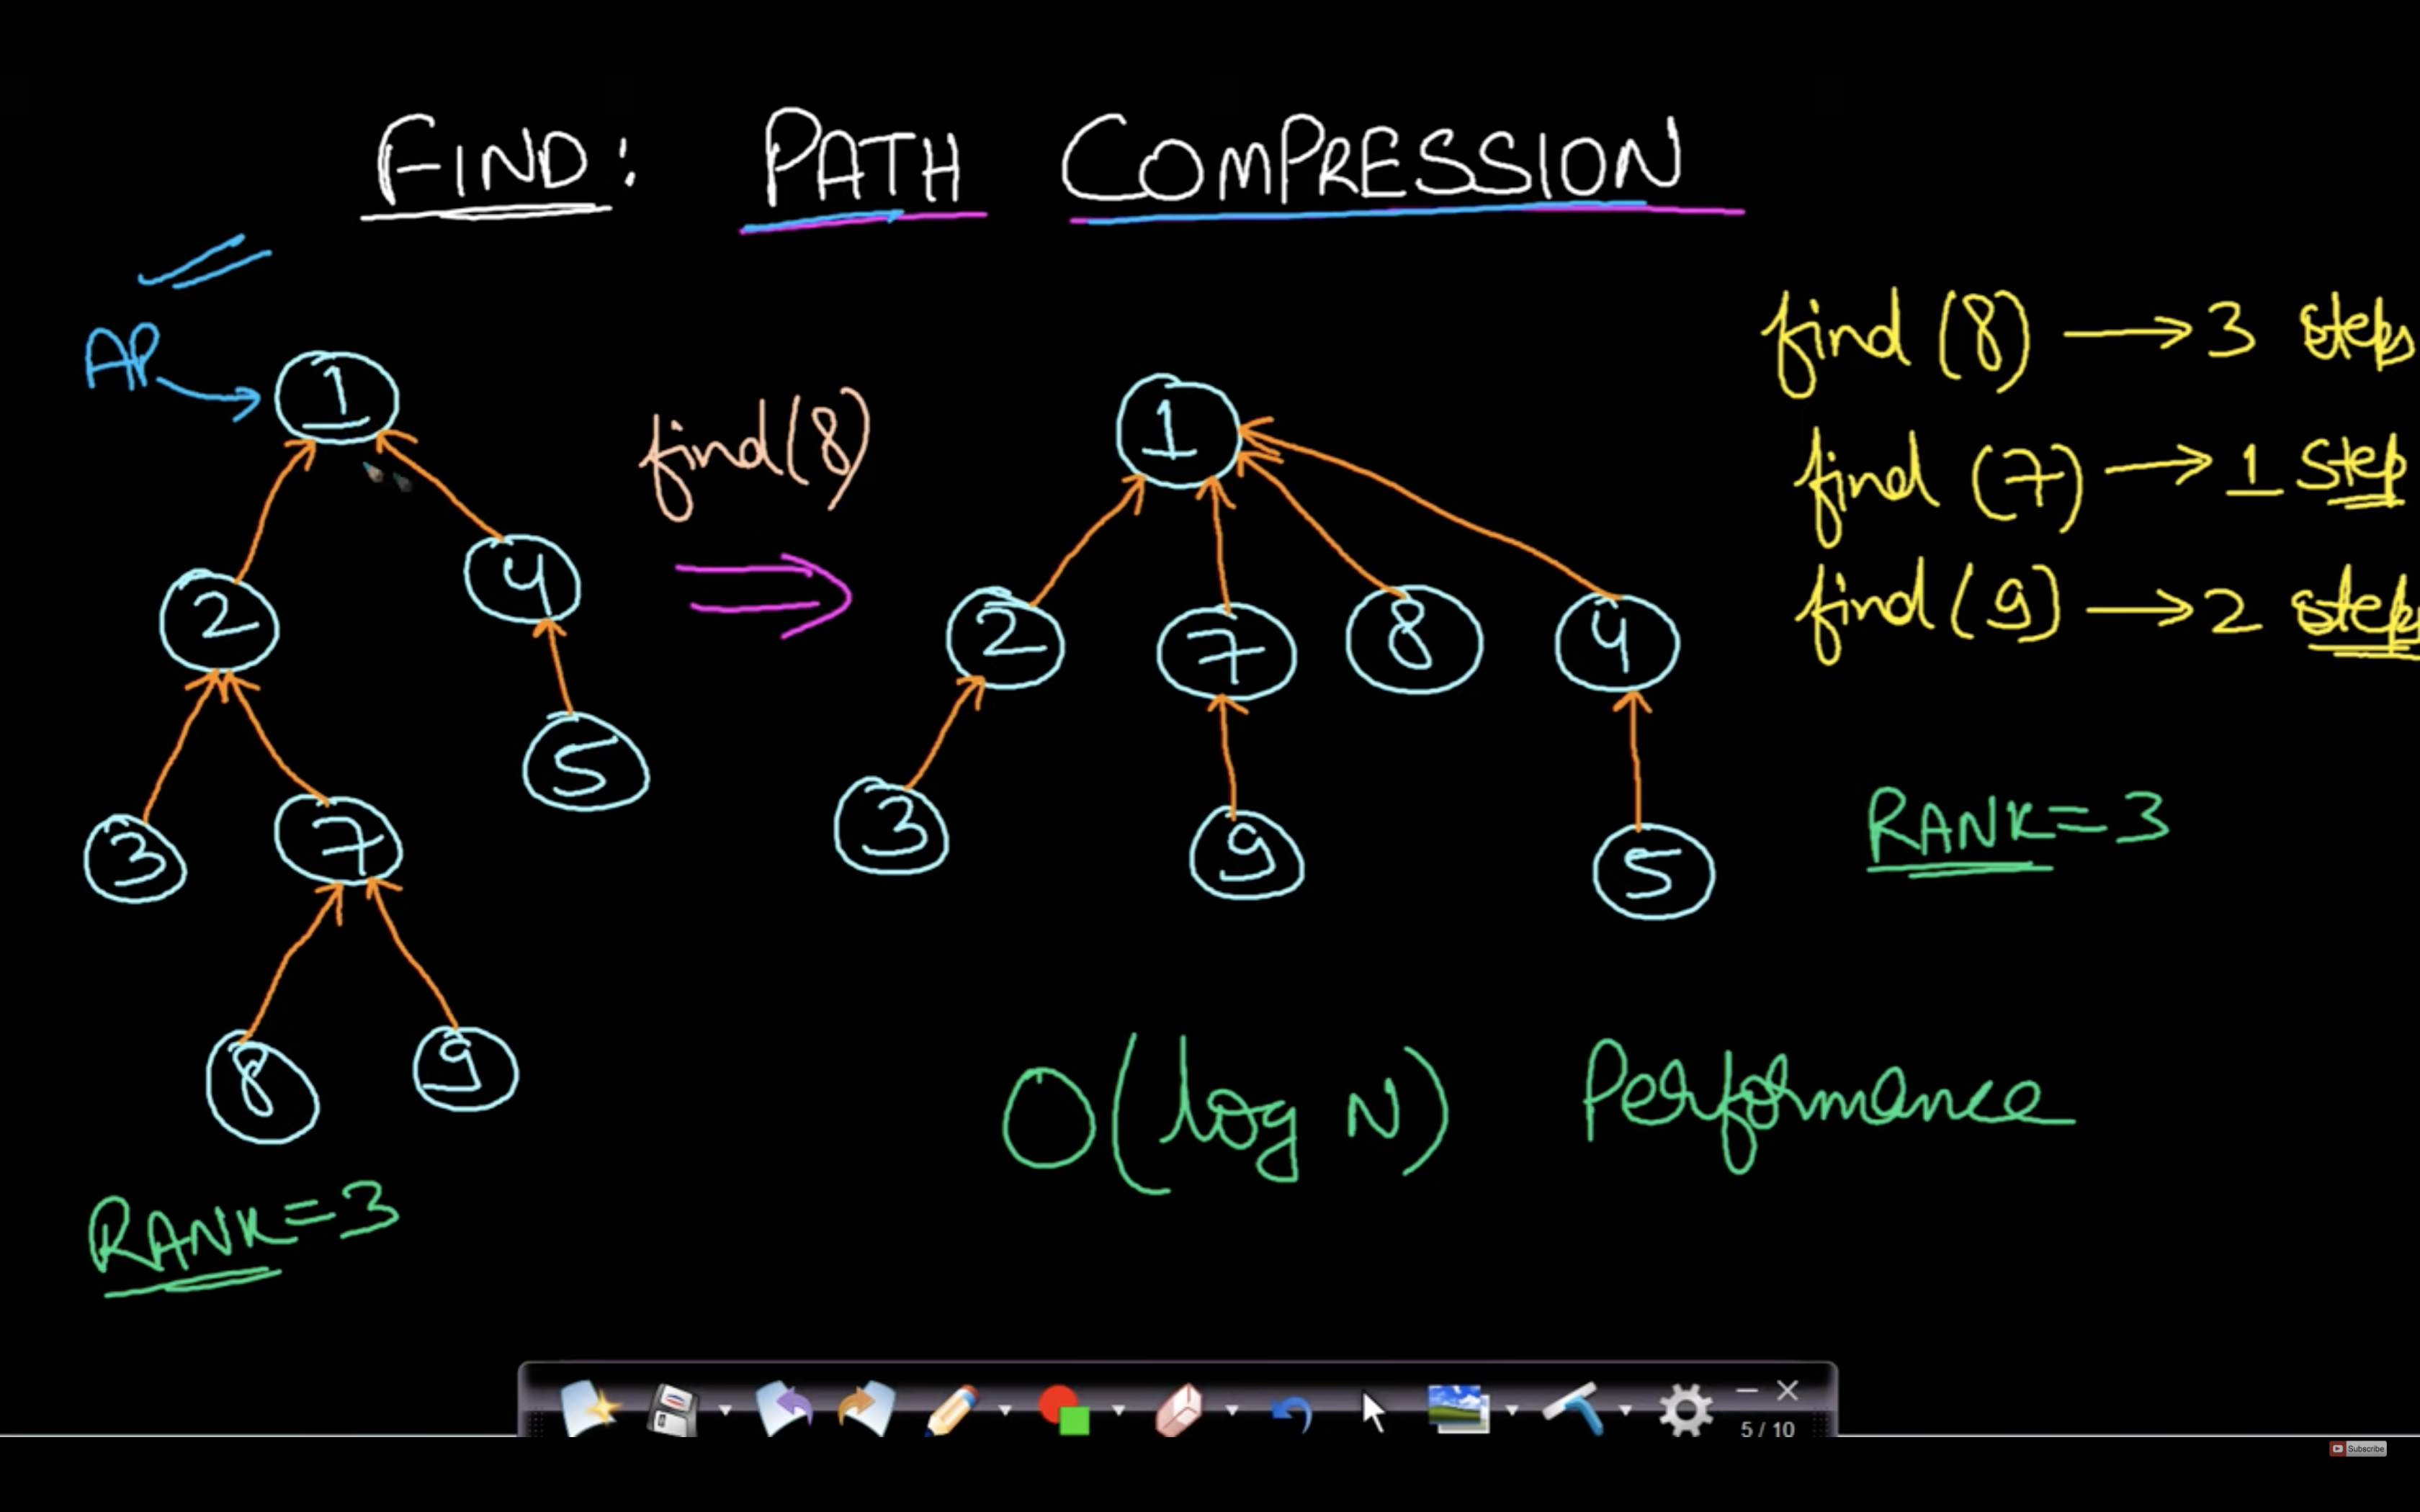 FIND: PATH COMPRESSION
AP
1
2
4
3
7
5
8
9
RANK=3
find(8)
1
2
7
8
4
3
9
5
find (8) → 3 steps
find (7) → 1 step
find (9) → 2 steps
RANK=3
O(log N) Performance
5 / 10
Subscribe